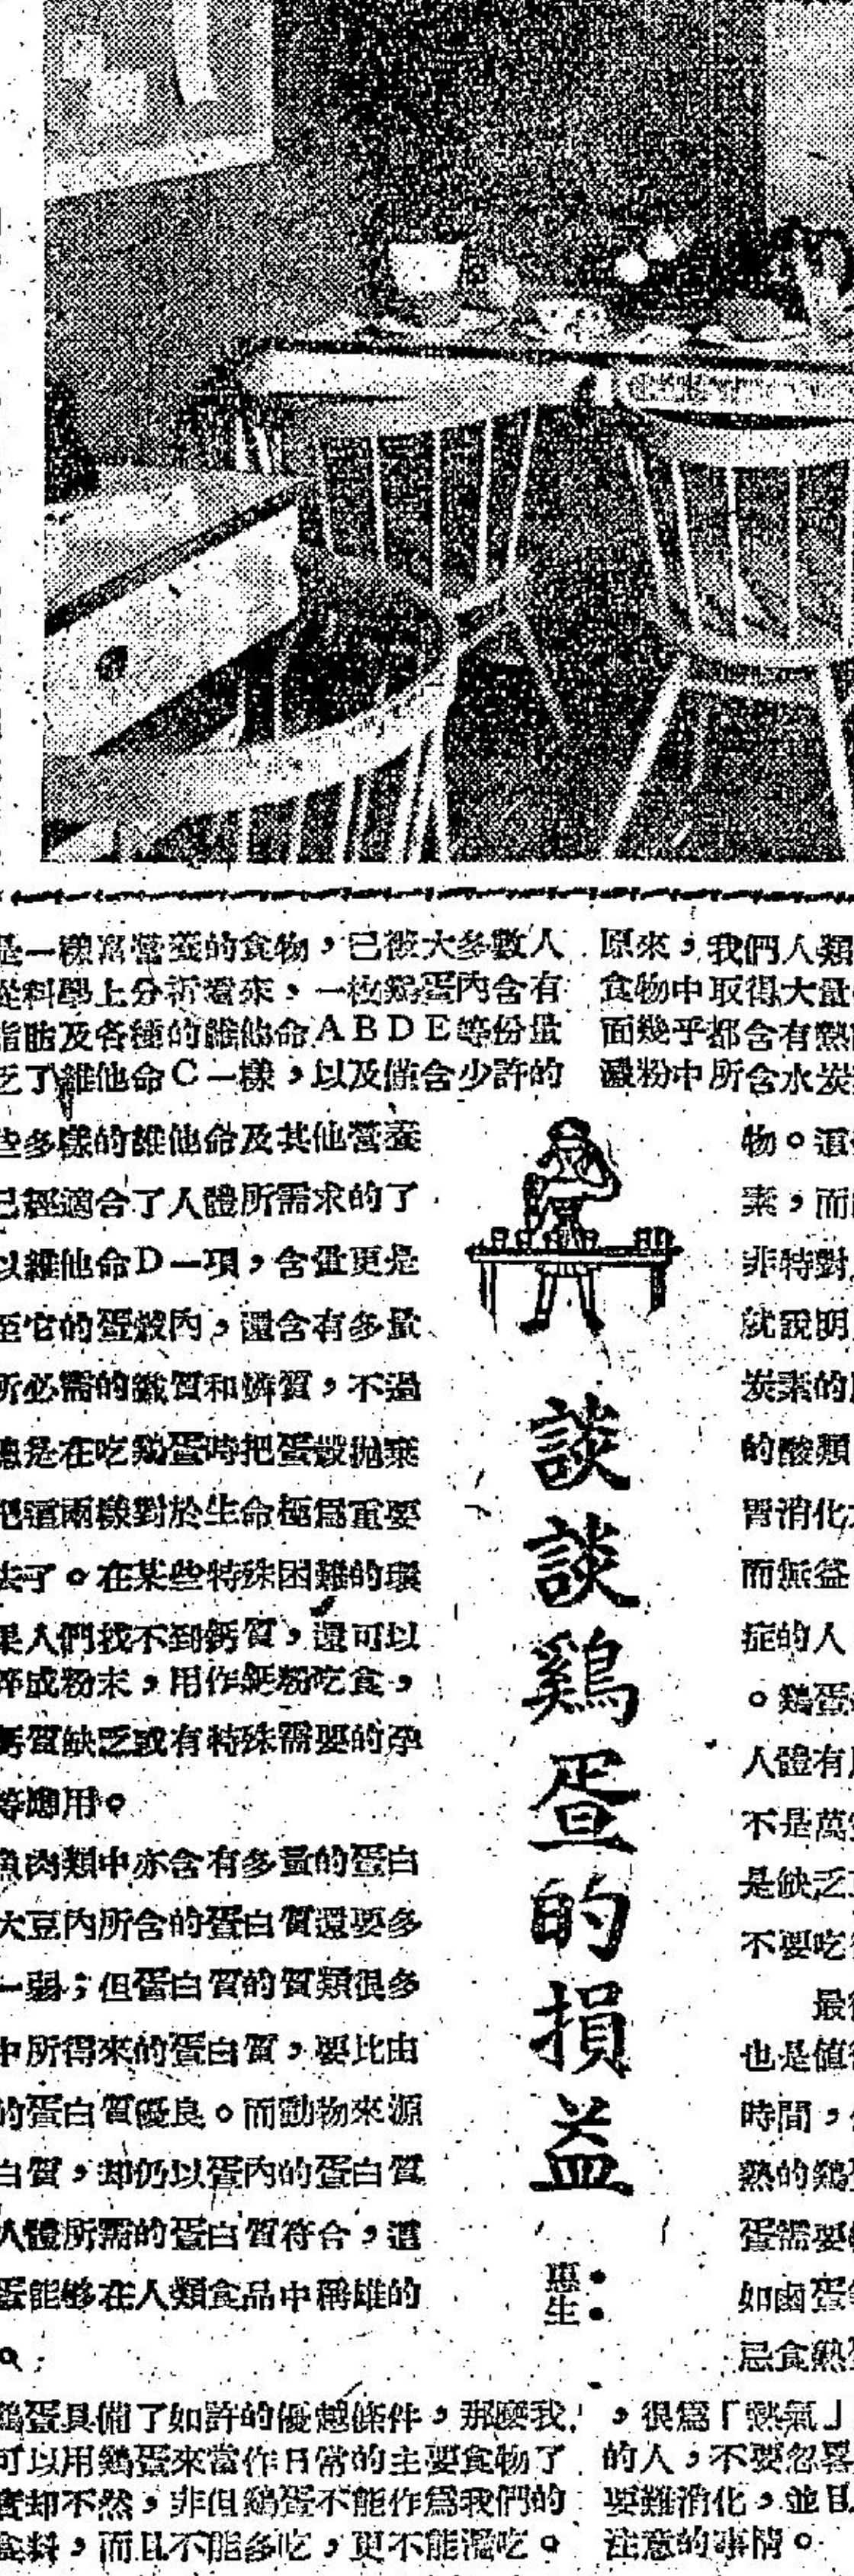 談談鷄蛋的損益
惠生
是一樣富營養的食物，已被大多數人
從科學上分析看來，一枚鷄蛋內含有
脂肪及各種的維他命ABDE等份量
乏了維他命C一樣，以及僅含少許的
些多樣的維他命及其他營養
已經適合了人體所需求的了
以維他命D一項，含量更是
至它的蛋殼內，還含有多量
所必需的鐵質和燐質，不過
總是在吃鷄蛋時把蛋殼拋棄
把這兩樣對於生命極爲重要
去了。在某些特殊困難的環
果人們找不到鈣質，還可以
碎成粉末，用作鈣粉吃食，
鈣質缺乏或有特殊需要的孕
等應用。
魚肉類中亦含有多量的蛋白
大豆內所含的蛋白質還要多
一弱；但蛋白質的質類很多
中所得來的蛋白質，要比由
的蛋白質優良。而動物來源
白質，却仍以蛋內的蛋白質
人體所需的蛋白質符合，這
蛋能够在人類食品中稱雄的
。
鷄蛋具備了如許的優越條件，那麼我
可以用鷄蛋來當作日常的主要食物了
實却不然，非但鷄蛋不能作爲我們的
食料，而且不能多吃，更不能濫吃。
原來，我們人類
食物中取得大量
面幾乎都含有熱
澱粉中所含水炭
物。這
素，而
非特對
就說明
炭素的
的酸類
胃消化
而無益
症的人
。鷄蛋
人體有
不是萬
是缺乏
不要吃
最
也是值
時間，
熟的鷄
蛋需要
如鹵蛋
忌食熱
，很爲「熱氣」
的人，不要忽畧
要難消化，並且
注意的事情。